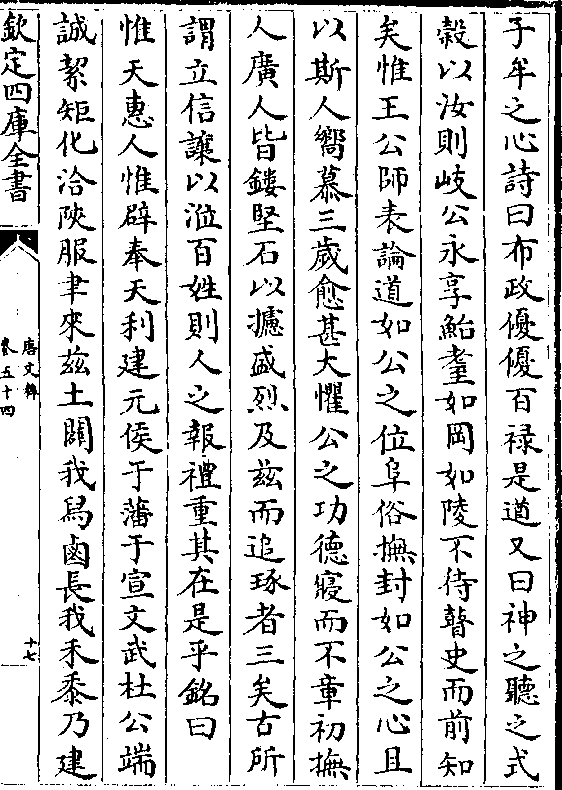 子牟之心詩曰布政優優百禄是遒又曰神之聽之式
榖以汝則岐公永享鮐耋如岡如陵不待瞽史而前知
矣惟王公師表論道如公之位阜俗撫封如公之心且
以斯人嚮慕三歲愈甚大懼公之功德寢而不章初撫
人廣人皆鏤堅石以攄盛烈及兹而追琢者三矣古所
謂立信讓以涖百姓則人之報禮重其在是乎銘曰
惟天惠人惟辟奉天利建元侯于藩于宣文武杜公端
誠絜矩化洽陜服聿來兹土闢我舄鹵長我禾黍乃建
欽定四庫全書
唐文粹
卷五十四
十七